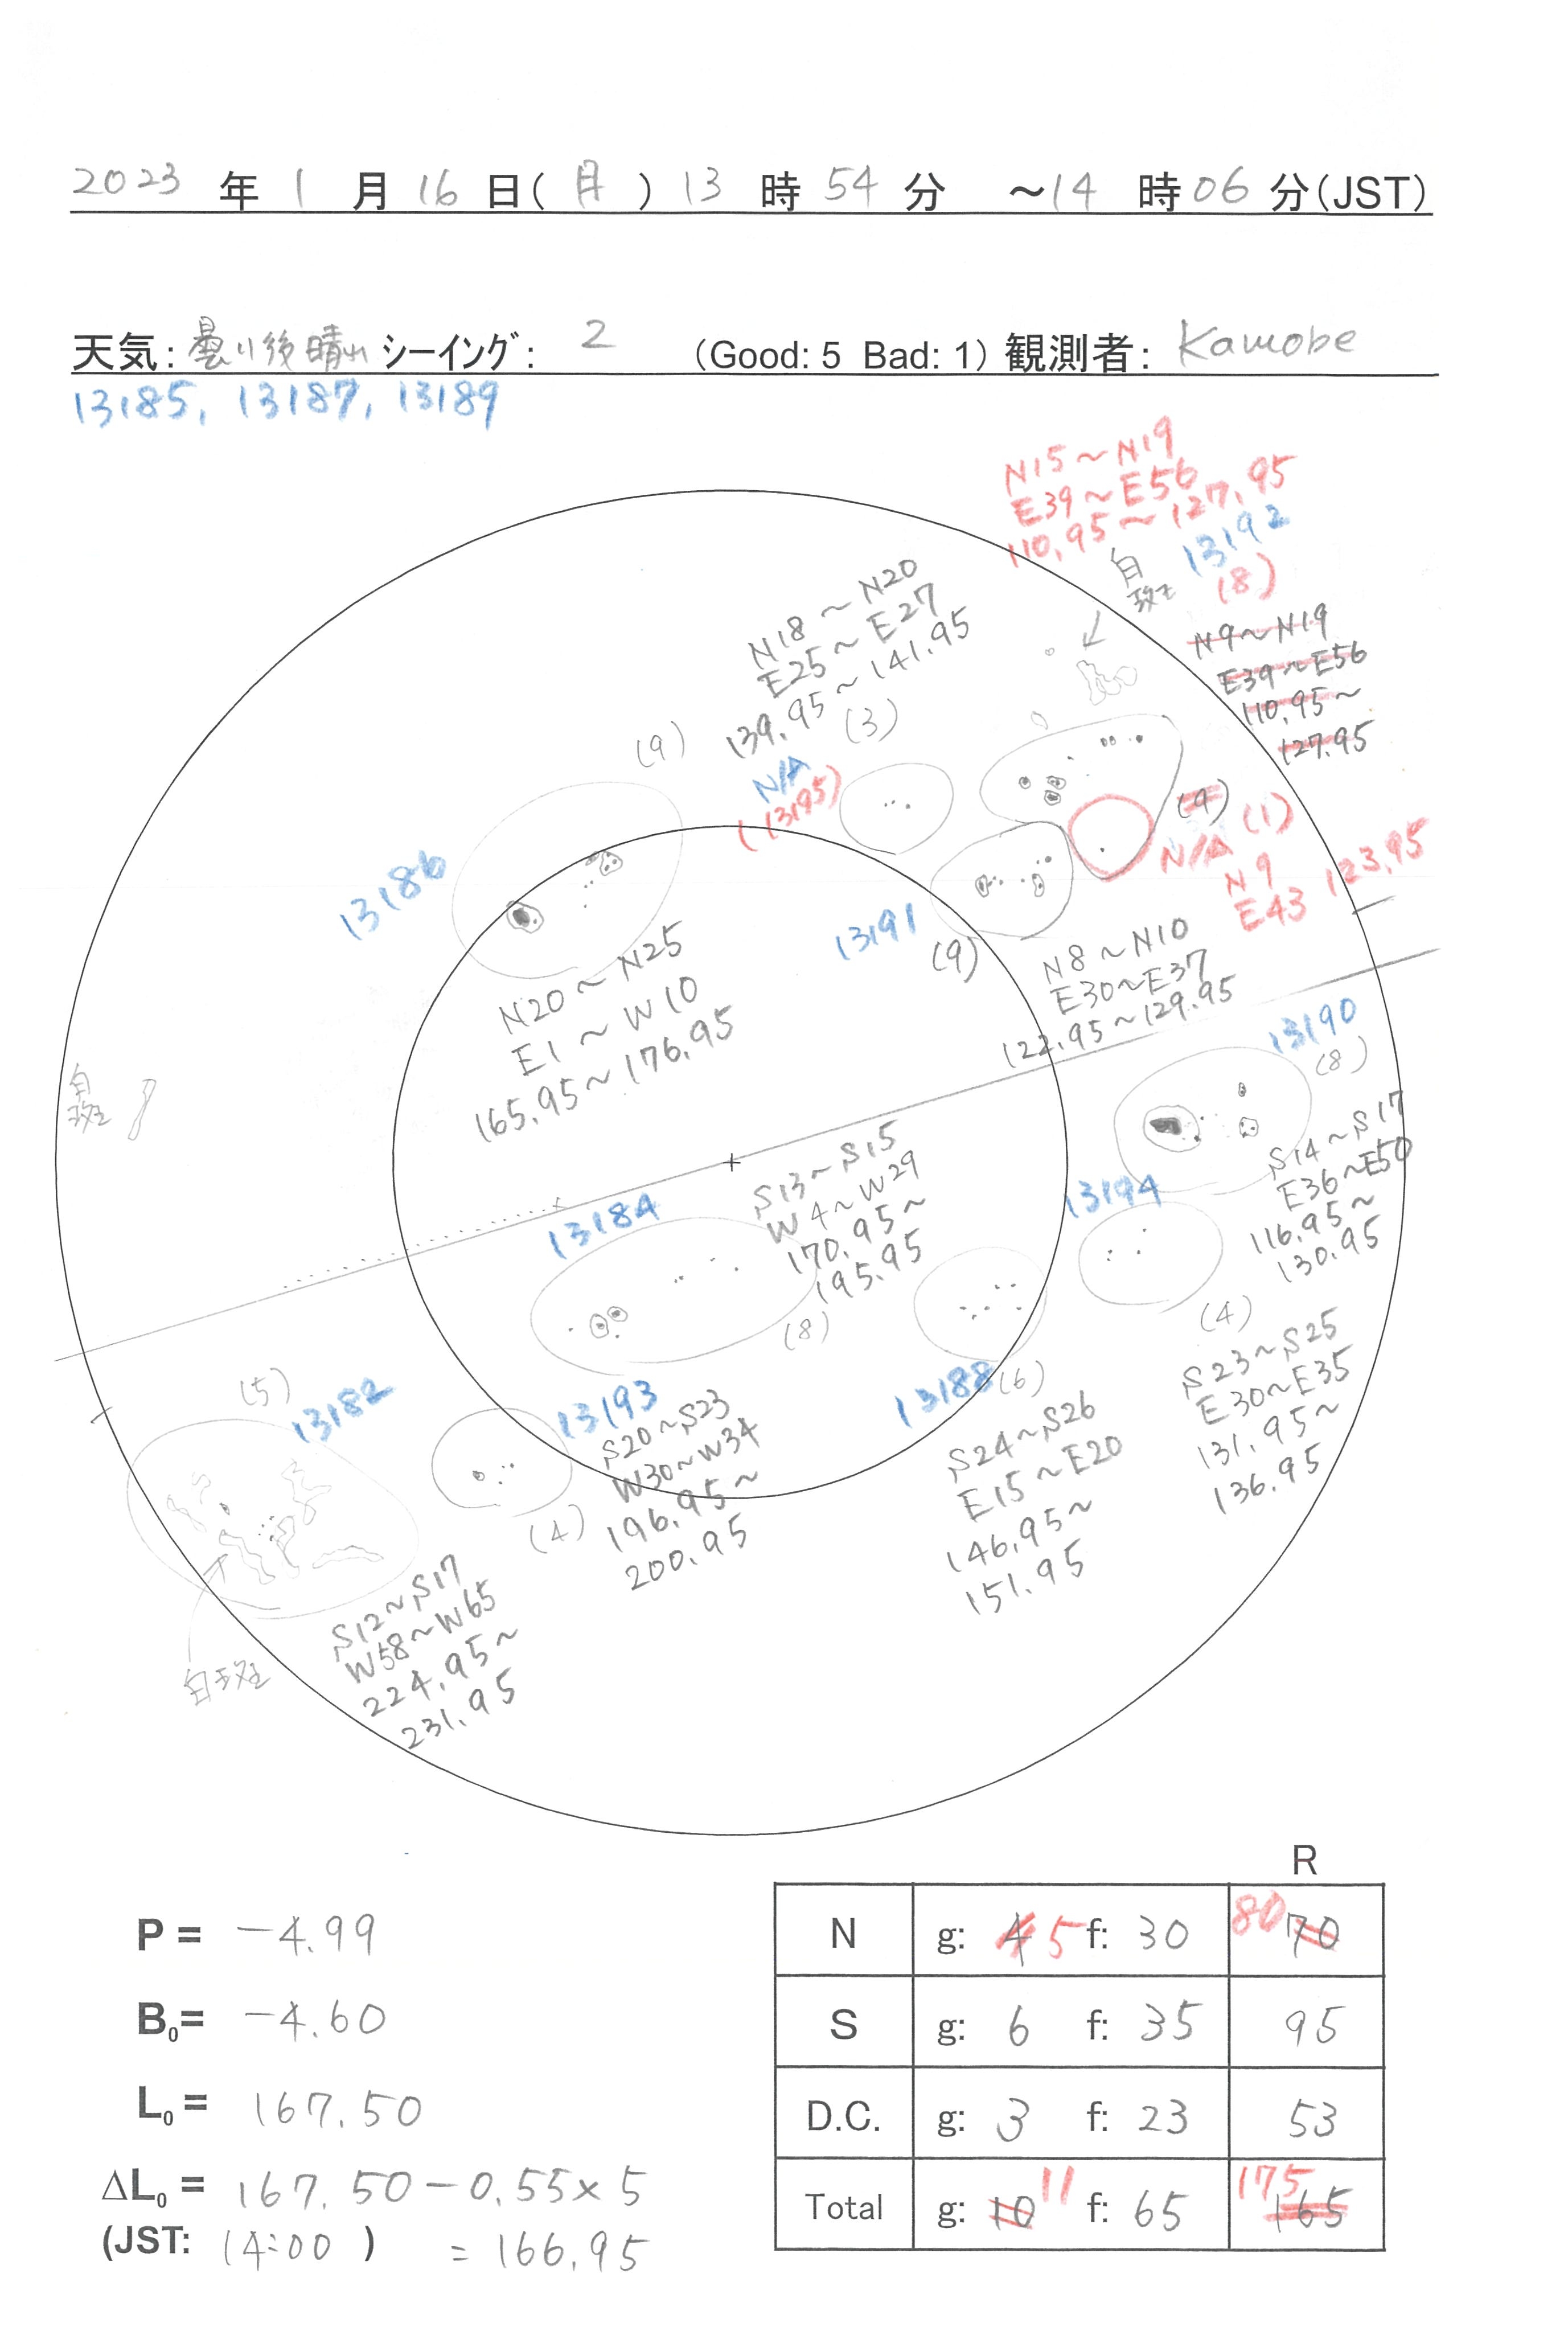 2023 年 1 月 16 日(月) 13 時 54 分 ～14 時 06 分(JST)
天気: 曇り後晴れ シーイング: 2 (Good: 5 Bad: 1) 観測者: Kamobe
13185, 13187, 13189
N15～N19
E39～E56
110.95～127.95
13192
白斑
(8)
N9～N19
E39～E56
110.95～
127.95
N18～N20
E25～E27
139.95～141.95
(3)
N/A
(13195)
(9)
13186
N20～N25
E1～W10
165.95～176.95
(9)
N/A (1)
N9
E43 123.95
13191
(9)
N8～N10
E30～E37
122.95～129.95
13190
(8)
S14～S17
E36～E50
116.95～
130.95
白斑
13184
S13～S15
W4～W29
170.95～
195.95
(8)
13194
(4)
S23～S25
E30～E35
131.95～
136.95
13188 (6)
S24～S26
E15～E20
146.95～
151.95
13193
S20～S23
W30～W34
196.95～
200.95
(4)
(5)
13182
S12～S17
W58～W65
224.95～
231.95
白斑
P = -4.99
B0= -4.60
L0 = 167.50
ΔL0 = 167.50-0.55×5
(JST: 14:00 ) = 166.95
R
N g: 4 5 f: 30 80 70
S g: 6 f: 35 95
D.C. g: 3 f: 23 53
Total g: 10 11 f: 65 175 165